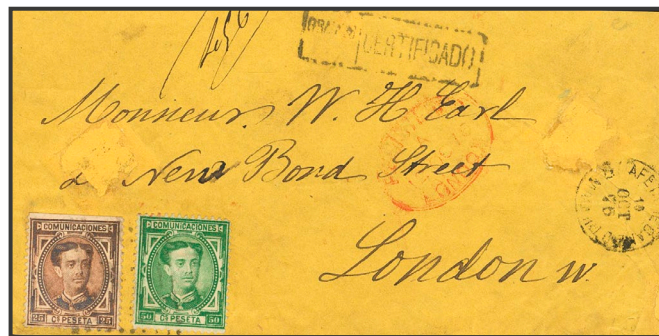 CERTIFICADO
Monsieur W. H. Earl
2 New Bond Street
London W.
LONDON
10
OCT
76
COMUNICACIONES
25 CS PESETA 25
COMUNICACIONES
50 CS PESETA 50